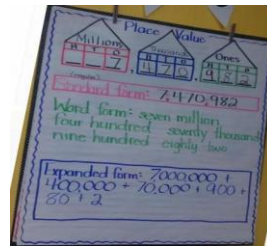 Place Value
Millions Thousands Ones
H T O H T O H T O
_ _ 7, 4 7 0, 9 8 2
Standard form: 7,470,982
Word form: seven million,
four hundred seventy thousand
nine hundred eighty two
Expanded form: 7,000,000 +
400,000 + 70,000 + 900 +
80 + 2